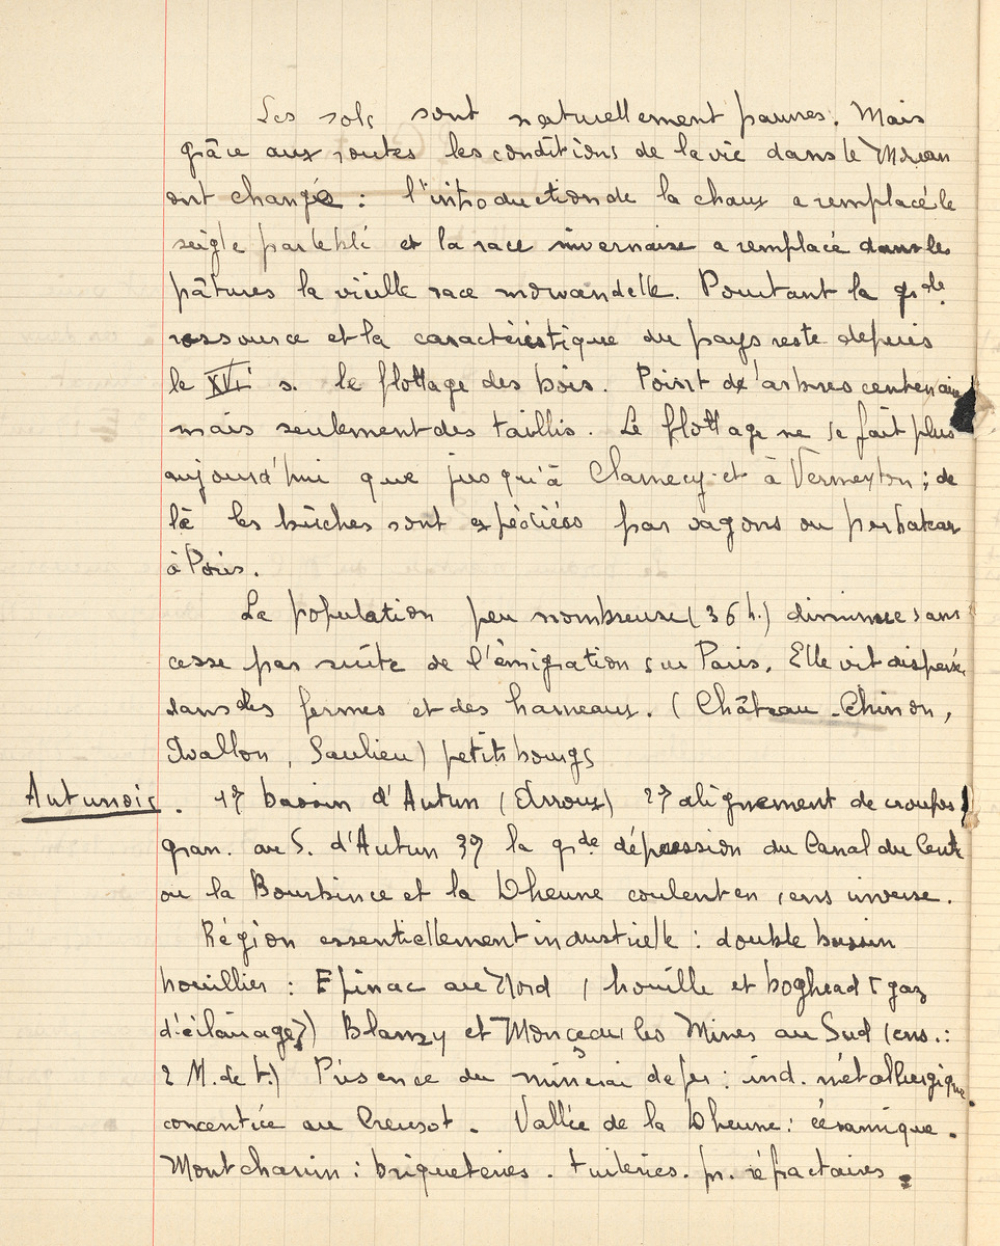 Les sols sont naturellement pauvres. Mais
grâce aux routes les conditions de la vie dans le Morvan
ont changé : l'introduction de la chaux a remplacé le
seigle par le blé et la race nivernaise a remplacé dans les
pâtures la vieille race morvandelle. Pourtant la gde
ressource et la caractéristique du pays reste depuis
le XVIe s. le flottage des bois. Point d'arbres centenaires
mais seulement des taillis. Le flottage ne se fait plus
aujourd'hui que jusqu'à Clamecy et à Vermenton ; de
là les bûches sont expédiées par wagons ou par bateaux
à Paris.
La population peu nombreuse (36 h.) diminue sans
cesse par suite de l'émigration sur Paris. Elle vit dispersée
dans des fermes et des hameaux. (Château-Chinon,
Avallon, Saulieu) petits bourgs
Autunois. 1°) bassin d'Autun (Arroux) 2°) alignement de croupes
gran. au S. d'Autun 3°) la gde dépression du Canal du Centre
ou la Bourbince et la Dheune coulent en sens inverse.
Région essentiellement industrielle : double bassin
houillier : Epinac au Nord (houille et boghead [gaz
d'éclairage]) Blanzy et Monceau les Mines au Sud (ens. :
2 M. de t.) Présence du minerai de fer : ind. métallurgique
concentrée au Creusot. Vallée de la Dheune : céramique.
Montchanin : briqueteries. tuileries. pr. réfractaires.